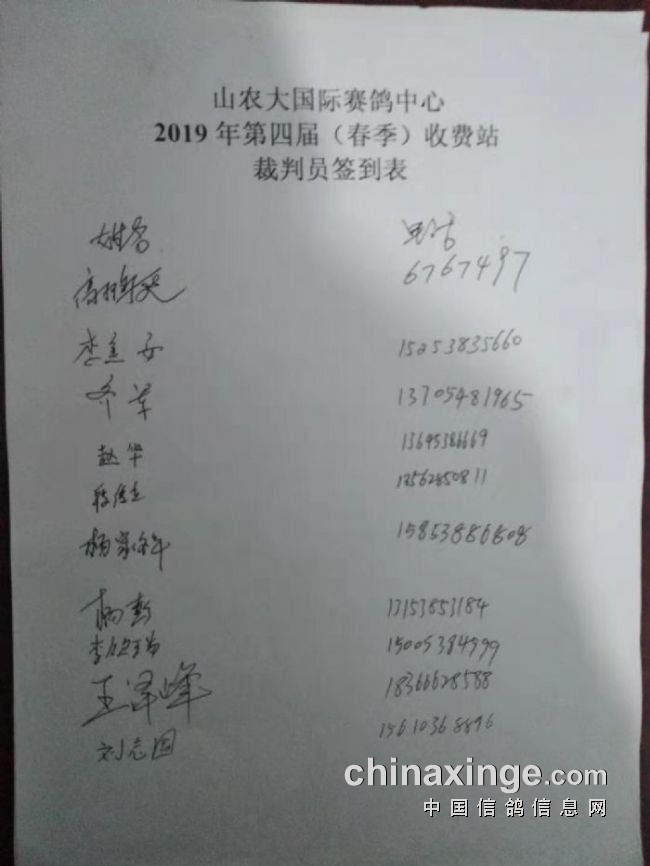 山农大国际赛鸽中心
2019 年第四届（春季）收费站
裁判员签到表
姓名 电话
6767497
15253835660
齐 13705481965
赵华 13695386669
13562850811
杨 15853886808
杨 13153853184
李 15005384999
王泽峰 18366628588
刘志国 15610368896
chinaxinge.com
中国信鸽信息网